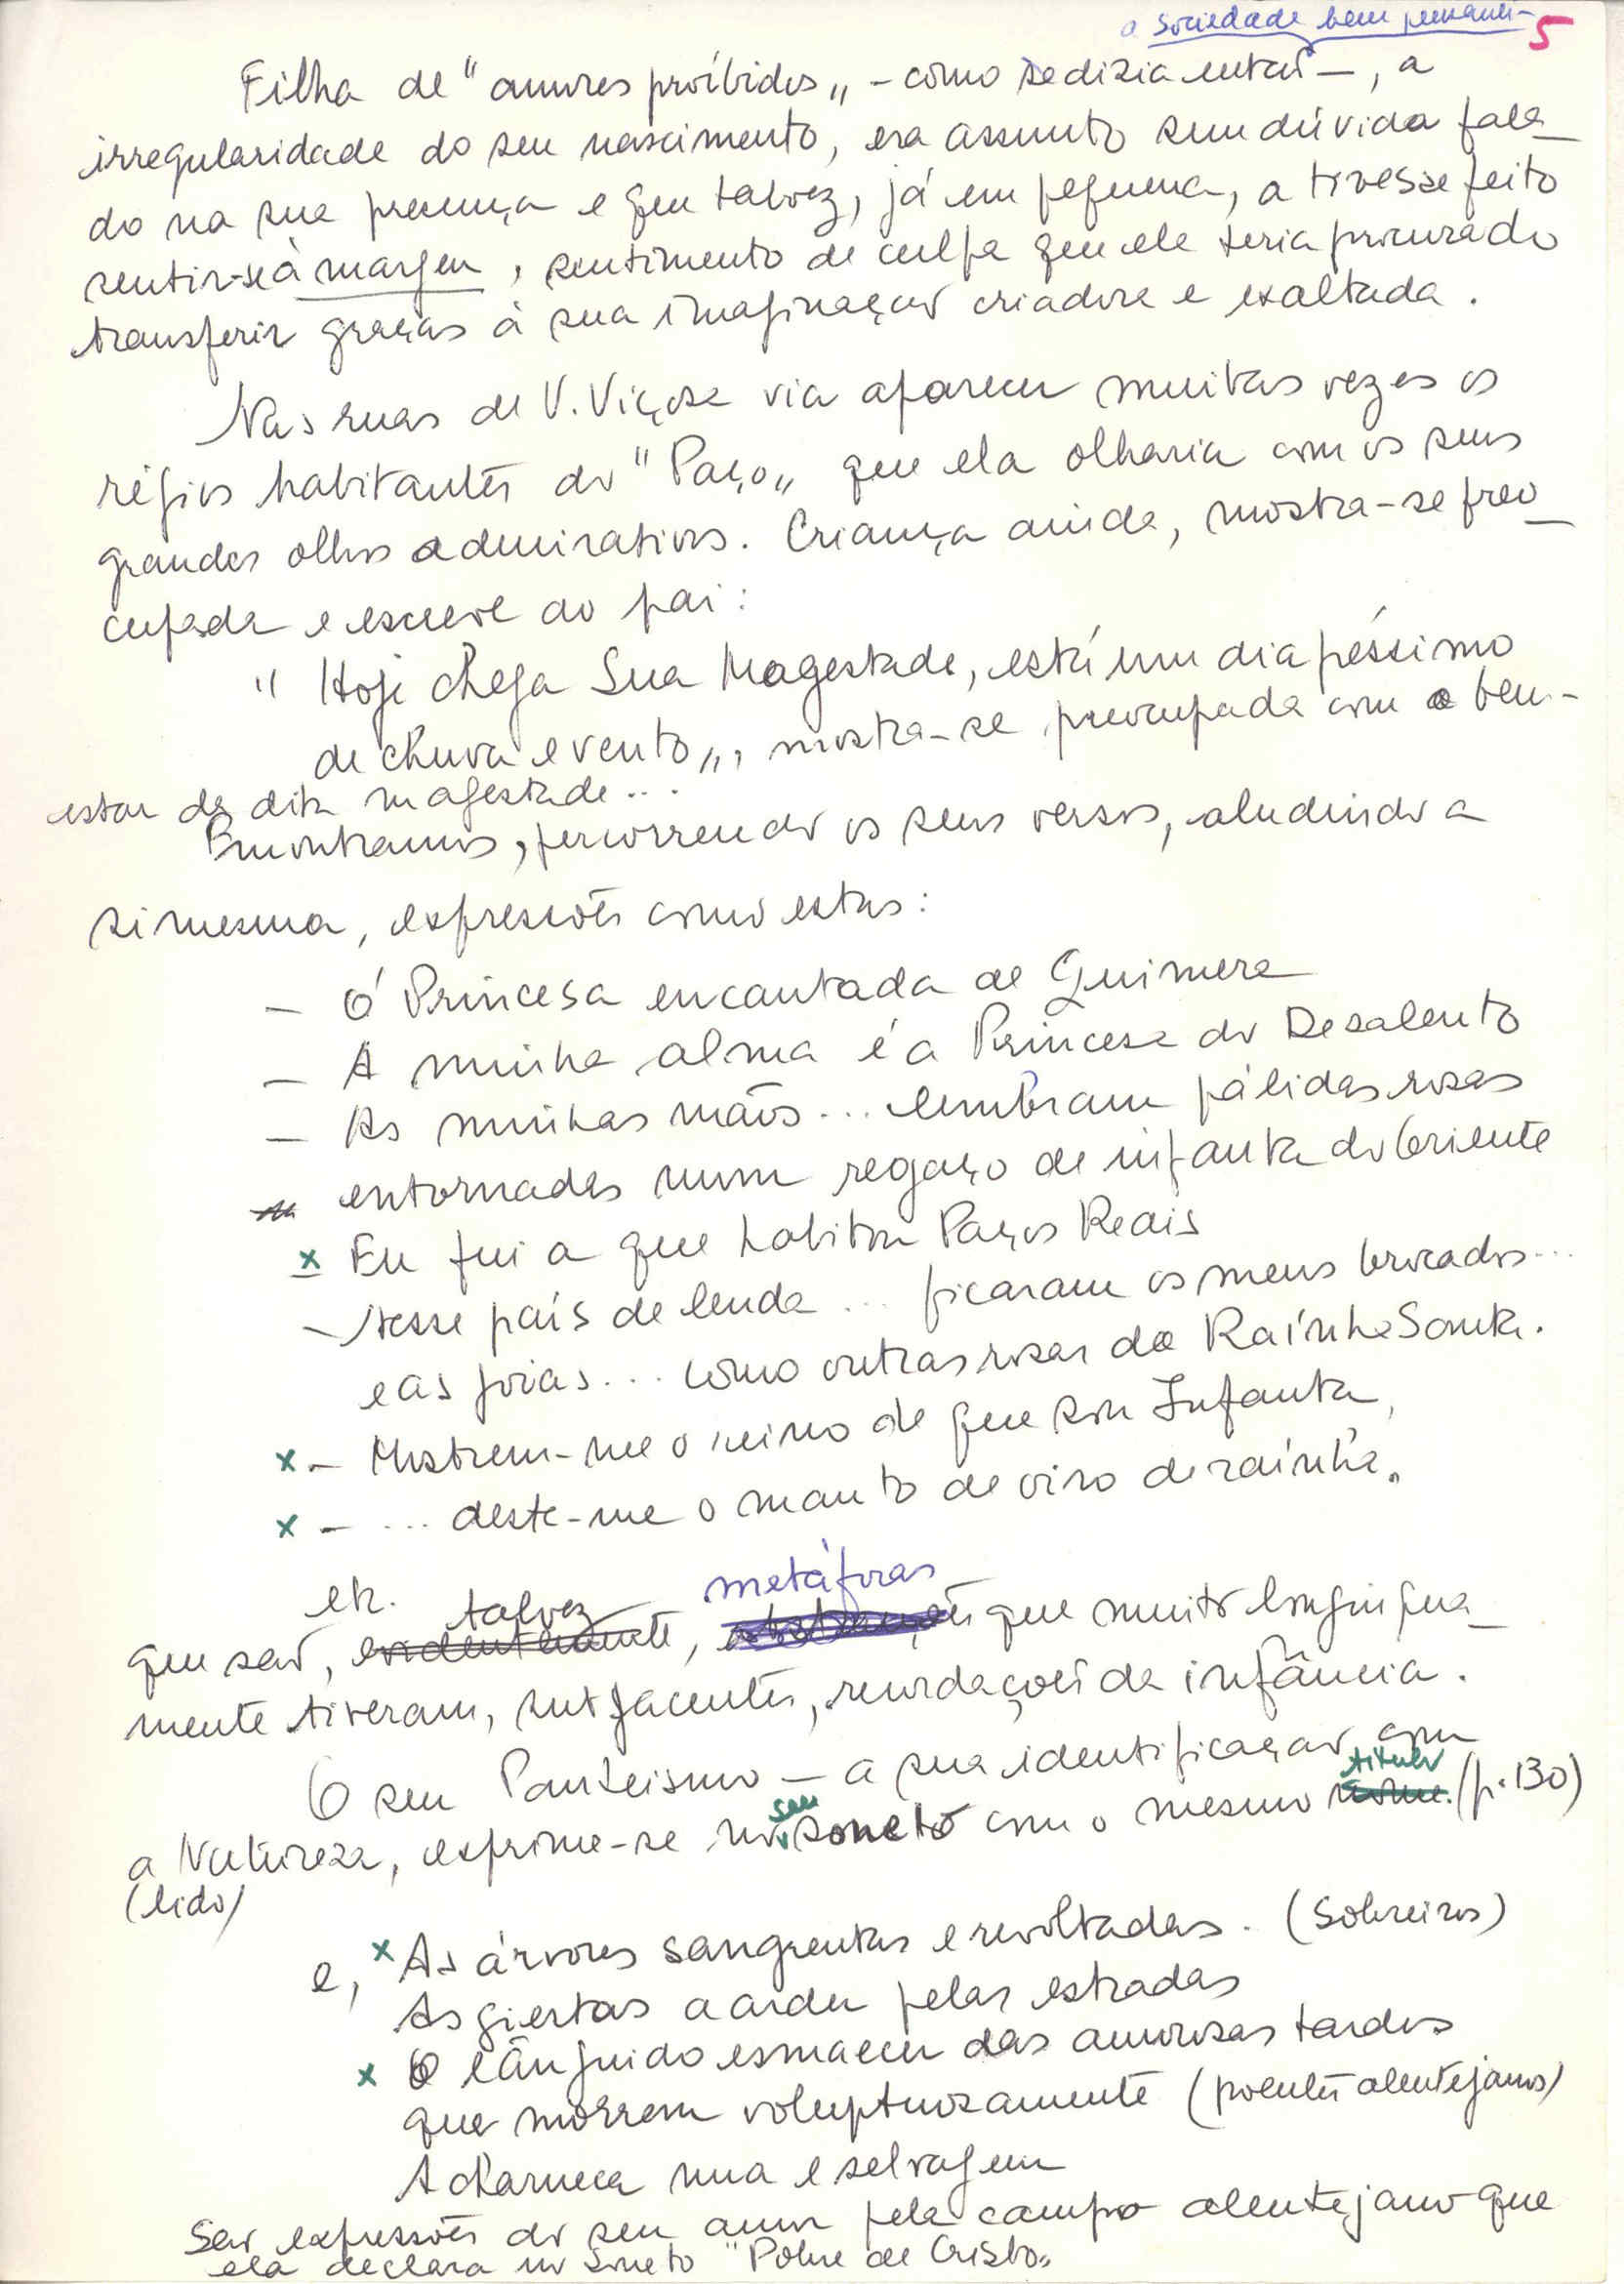 a sociedade bem pensan- 5
Filha de "amores proíbidos„ - como se dizia então -, a
irregularidade do seu nascimento, era assunto sem dúvida fala-
do na sua presença e que talvez, já em pequena, a tivesse feito
sentir-se à margem, sentimento de culpa que ela teria procurado
transferir graças à sua imaginação criadora e exaltada.
Nas ruas de V. Viçosa via aparecer muitas vezes os
régios habitantes do "Paço„ que ela olharia com os seus
grandes olhos admirativos. Criança ainda, mostra-se preo-
cupada e escreve ao pai:
" Hoje chega Sua Magestade, está um dia péssimo
de chuva e vento„, mostra-se preocupada com o bem-
estar da dita magestade...
Encontramos, percorrendo os seus versos, aludindo a
si mesma, expressões como estas:
- Ó Princesa encantada da Quimera
- A minha alma é a Princesa do Desalento
- As minhas mãos... lembram pálidas rosas
entornadas num regaço de infanta do Oriente
x - Eu fui a que habitou Paços Reais
- Nesse país de lenda ... ficaram os meus brocados...
e as joias... como outras rosas da Raínha Santa.
x - Mostrem-me o reino de que sou Infanta,
x - ... deste-me o manto de oiro de raínha„
etc. talvez metáforas
que são, evidentemente, que muito longinqua-
mente tiveram, subjacentes, recordações da infância.
O seu Panteismo - a sua identificação com
a Natureza, exprime-se no seu soneto com o mesmo titulo nome. (p. 130)
(lido)
e, x As árvores sangrentas e revoltadas. (Sobreiros)
As giestas a arder pelas estradas
x O lânguido esmaecer das amorosas tardes
que morrem voluptuosamente (poentes alentejanos)
A charneca nua e selvagem
São expressões do seu amor pelo campo alentejano que
ela declara no soneto "Pobre de Cristo„